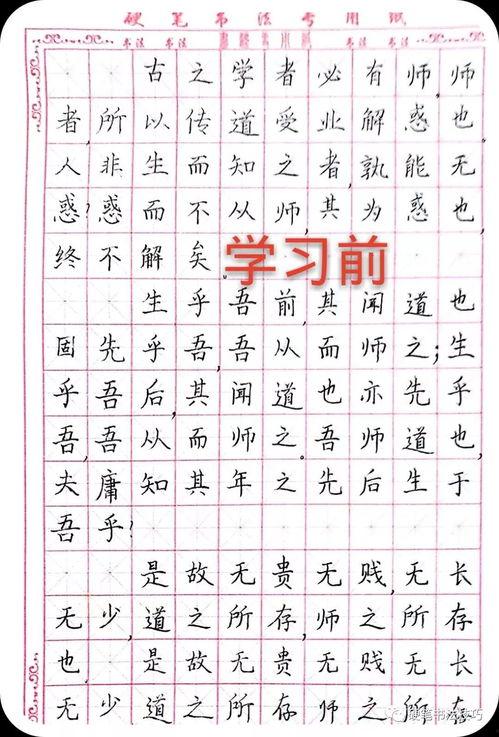 硬笔书法专用纸
书法 书法 书法 书法
古之学者必有师,师
者,所以传道受业解惑也。
人非生而知之者,孰能无
惑?惑而不从师,其为惑也,
终不解矣。
学习前
生乎吾前,其闻道也
固先乎吾,吾从而师之;生
乎吾后,其闻道也亦先乎
吾,吾从而师之。吾师道也,
夫庸知其年之先后生于
吾乎?
是故无贵无贱,无长
无少,道之所存,师之所存
也。 是故无贵无贱无长
无少道之所存师之所存
硬笔书法技巧